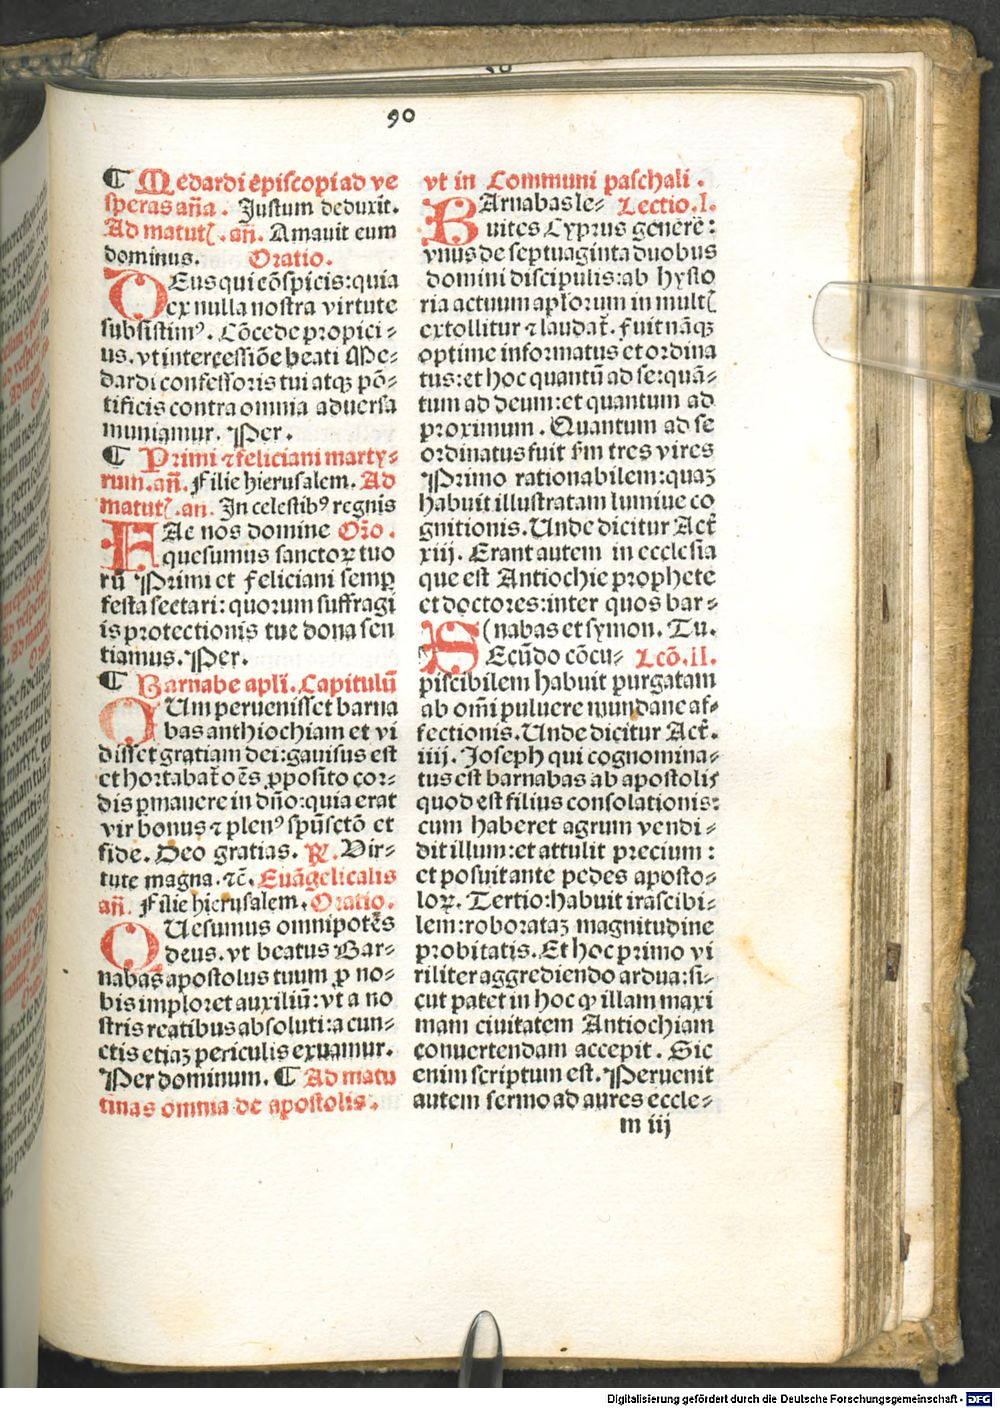 90
¶ Medardi episcopi ad ve
speras aña. Justum deduxit.
Ad matutꝭ. añ. Amauit eum
dominus. Oratio.
DEus qui cõspicis: quia
ex nulla nostra virtute
subsistimꝰ. Cõcede propici-
us. vt intercessiõe beati Me-
dardi confessoris tui atqꝫ põ-
tificis contra omnia aduersa
muniamur. Per.
¶ Primi ⁊ feliciani marty-
rum. añ. Filie hierusalem. Ad
matutꝭ. an. In celestibꝰ regnis
FAc nos domine Oro.
quesumus sanctoꝝ tuo
rũ Primi et Feliciani semꝑ
festa sectari: quorum suffragi
is protectionis tue dona sen
tiamus. Per.
¶ Barnabe apli. Capitulũ
CUm peruenisset barna
bas anthiochiam et vi
disset gratiam dei: gauisus est
et hortabat̃ oẽs ꝓposito cor-
dis ꝑmanere in dño: quia erat
vir bonus ⁊ plenꝰ spũ sctõ et
fide. Deo gratias. ℟. Vir-
tute magna. ⁊c̃. Euãgelicalis
añ. Filie hierusalem. Oratio.
QUesumus omnipotẽs
deus. vt beatus Bar-
nabas apostolus tuum ꝓ no-
bis imploret auxiliũ: vt a no
stris reatibus absoluti: a cun-
ctis etiaꝫ periculis exuamur.
Per dominum. ¶ Ad matu
tinas omnia de apostolis.
vt in Communi paschali.
BArnabas le- Lectio. I.
uites Cyprus genere:
vnus de septuaginta duobus
domini discipulis: ab hysto
ria actuum apľorum in multꝭ
extollitur ⁊ laudat̃. fuit nãqꝫ
optime informatus et ordina
tus: et hoc quantũ ad se: quã-
tum ad deum: et quantum ad
proximum. Quantum ad se
ordinatus fuit ẜm tres vires
Primo rationabilem: quaꝫ
habuit illustratam lumine co
gnitionis. Unde dicitur Act̃
xiij. Erant autem in ecclesia
que est Antiochie prophete
et doctores: inter quos bar-
(nabas et symon. Tu.
SEcũdo cõcu- Lcõ. II.
piscibilem habuit purgatam
ab om̃i puluere mundane af-
fectionis. Unde dicitur Act̃.
iiij. Joseph qui cognomina-
tus est barnabas ab apostolis
quod est filius consolationis:
cum haberet agrum vendi-
dit illum: et attulit precium:
et posuit ante pedes aposto-
loꝝ. Tertio: habuit irascibi-
lem: roborataꝫ magnitudine
probitatis. Et hoc primo vi
riliter aggrediendo ardua: si-
cut patet in hoc ꝙ illam maxi
mam ciuitatem Antiochiam
conuertendam accepit. Sic
enim scriptum est. Peruenit
autem sermo ad aures eccle-
m iij
Digitalisierung gefördert durch die Deutsche Forschungsgemeinschaft - DFG